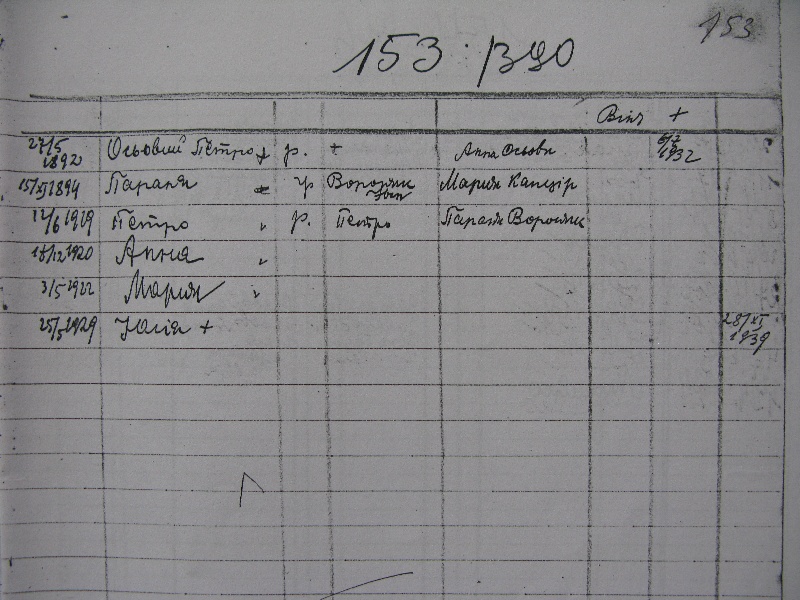 153
153
Вінч +
27/5 1892 Осьовий Петро + р. + Анна Осьова 1932
15/XI 1894 Параня гр Вороняк Іван Мария Капцір
12/6 1919 Петро " р. Петро Параня Вороняк
18/12 1920 Анна "
3/5 1922 Мария "
25/5 1929 Юлія + 28/XI 1939